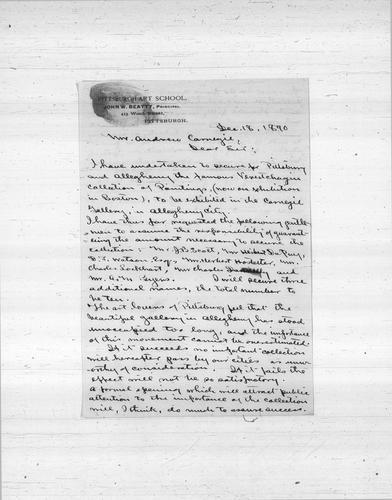 PITTSBURGH ART SCHOOL.
JOHN W. BEATTY, PRINCIPAL.
413 Wood Street,
PITTSBURGH.
Dec. 18, 1890
Mr. Andrew Carnegie,
Dear Sir:,
I have undertaken to secure for Pittsburg
and Allegheny the famous Verestchagin
Collection of Paintings, (now on exhibition
in Boston), to be exhibited in the Carnegie
Gallery, in Allegheny City.
I have thus far requested the following gentle-
men to assume the responsibility of guarant-
eeing the amount necessary to secure the
collection: Mr. J. B. Scott, Mr.
D. T. Watson Esq. Mr. Herbert
Charles Lockhart, Mr. Charles and
Mr. I will secure three
additional names, the total number to
be ten.
The art lovers of Pittsburg feel that the
beautiful gallery in Allegheny has stood
unoccupied too long, and the importance
of this movement cannot be overestimated.
If it succeeds no important collection
will hereafter pass by our cities as unwor-
thy of consideration. If it fails the
effect will not be so satisfactory.
A formal opening which will attract public
attention to the importance of the collection
will, I think, do much to assure success.